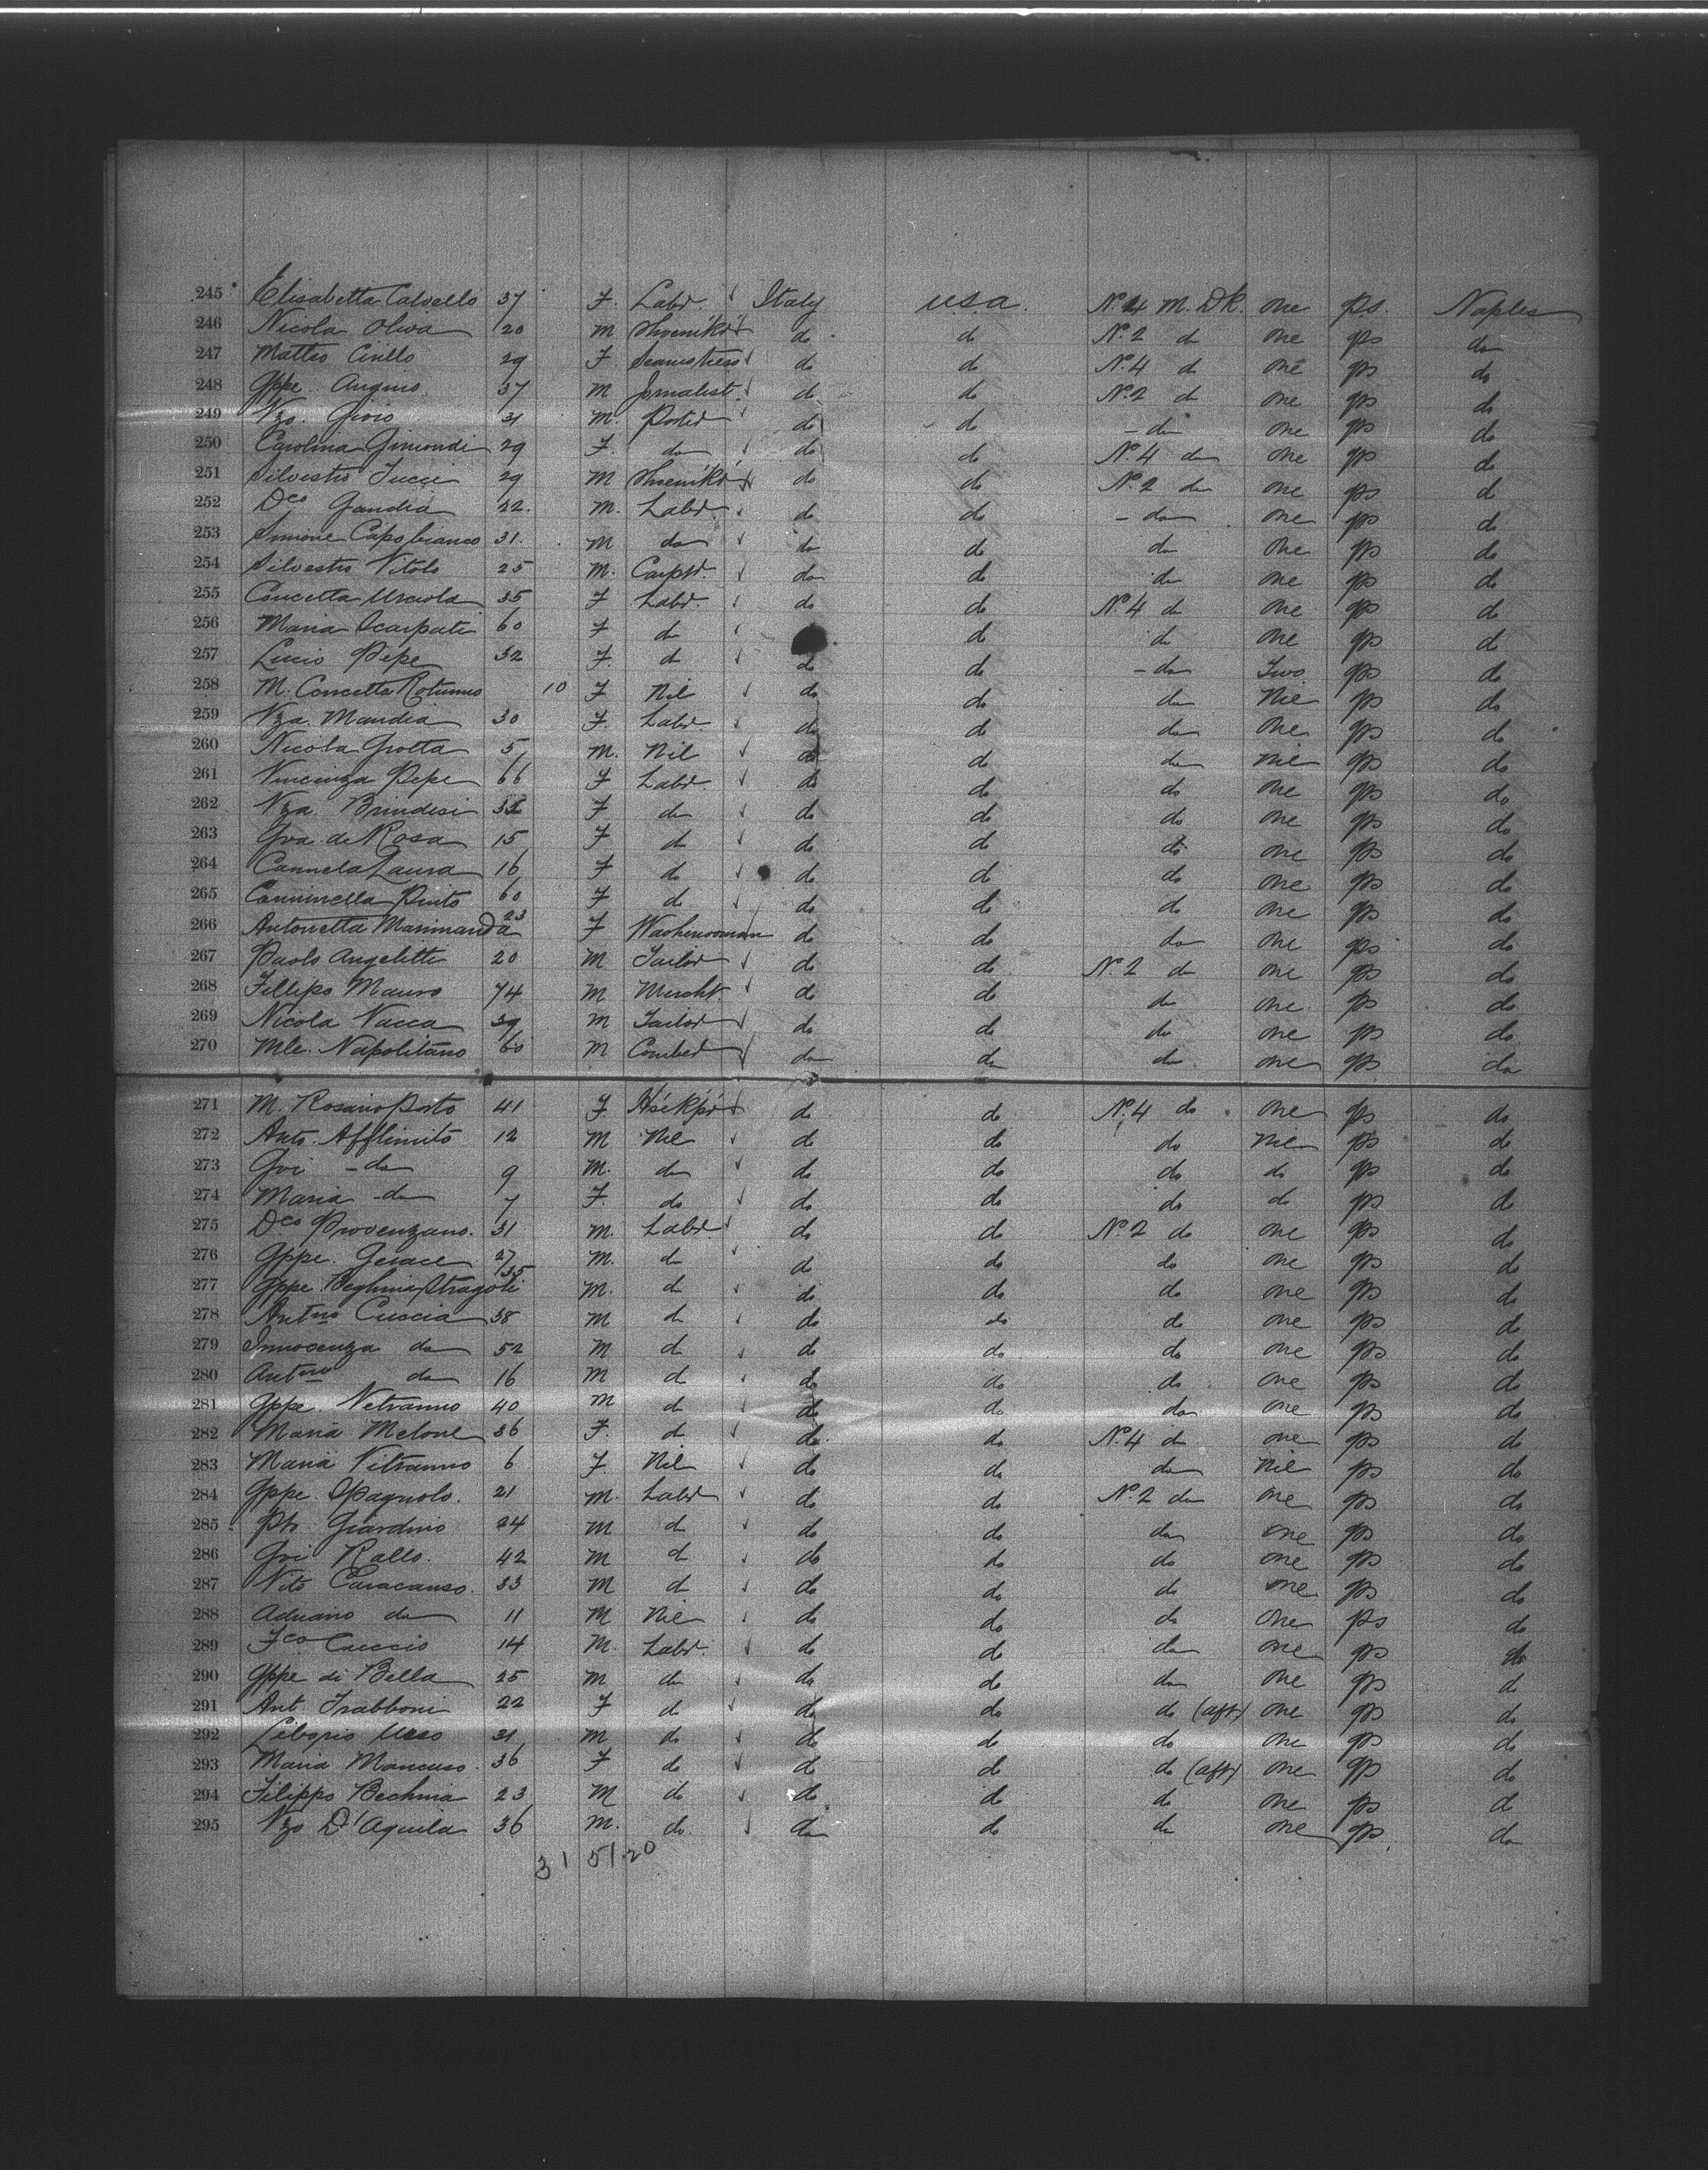 245 Elisabetta Calvello 37 F. Labr. Italy U.S.A. No. 4 M. DK. One ps. Naples
246 Nicola Oliva 20 M Shoemkr do do No. 2 do One ps do
247 Matteo Cirillo 29 F Seamstress do do No. 4 do One ps do
248 Gppe. 37 M Jornalist. do do No. 2 do One ps do
249 Nzo. 31 M. Porter do do - do One ps do
250 Carolina Gimondi 29 F. do do do No. 4 do One ps do
251 Silvestro Tucci 29 M Shoemkr do do No. 2 do One ps do
252 Dco Gandia 22. M. Labr. do do - do One ps do
253 Simone Capobianco 31. M do do do do One ps do
254 Silvestro Vitolo 25 M. Carptr. do do do One ps do
255 Concetta 35 F Labr. do do No. 4 do One ps do
256 Maria Scarpati 60 F do do do One ps do
257 Lucio Pepe 32 F. do do do - do Two ps do
258 M. Concetta Rotunno 10 F Nil do do do Nil ps do
259 Nza. Mandia 30 F. Labr. do do do One ps do
260 Nicola Grotta 5 M. Nil do do do Nil ps do
261 Vincenza Pepe 66 F Labr. do do do One ps do
262 Nza. Brindisi F do do do do One ps do
263 Gva. de Rosa 15 F do do do do One ps do
264 Carmela Laura 16 F do do do do One ps do
265 Pinto 60 F do do do do One ps do
266 Antonetta Marimanda 23 F Washerwoman do do do One ps do
267 Paolo Angelitti 20 M Tailor do do No. 2 do One ps do
268 Fillipo Mauro 74 M Mercht. do do do One ps do
269 Nicola Vacca 39 M Tailor do do do One ps do
270 Mle. Napolitano 60 M do do do One ps do
271 M. Rosario Porto 41 F. Hsekpr do do No. 4 do One ps do
272 Anto. Afflimito 12 M Nil do do do Nil ps do
273 Gvi - do 9 M. do do do do do ps do
274 Maria - do 7 F. do do do do do ps do
275 Dco Provenzano. 31 M. Labr do do No. 2 do One ps do
276 Gppe. Gerace 27 M. do do do do One ps do
277 Gppe. 35 M. do do do do One ps do
278 Antno Cuccia 38 M do do do do One ps do
279 Innocenza do 52 M do do do do One ps do
280 Antno do 16 M do do do do One ps do
281 Gppe. Vetranno 40 M do do do do One ps do
282 Maria Melone 36 F. do do do No. 4 do One ps do
283 Maria Vitranno 6 F. Nil do do do Nil ps do
284 Gppe. Spagnolo. 21 M. Labr do do No. 2 do One ps do
285 Pto. Giardino 24 M do do do do One ps do
286 Gvi Rallo. 42 M do do do do One ps do
287 Vito Caracauso. 33 M do do do do One ps do
288 Adriano do 11 M Nil do do do One ps do
289 Fco Cuccio 14 M. Labr. do do do One ps do
290 Gppe di Bella 25 M do do do do One ps do
291 Ant. Trabboni 22 F do do do do (aft) One ps do
292 Liborio Urso 31 M do do do do One ps do
293 Maria Mancuso. 36 F do do do do (aft) One ps do
294 Filippo Bechina 23 M do do do do One ps do
295 Nzo D'Aquila 36 M. do. do do do One ps. do
31 51.20